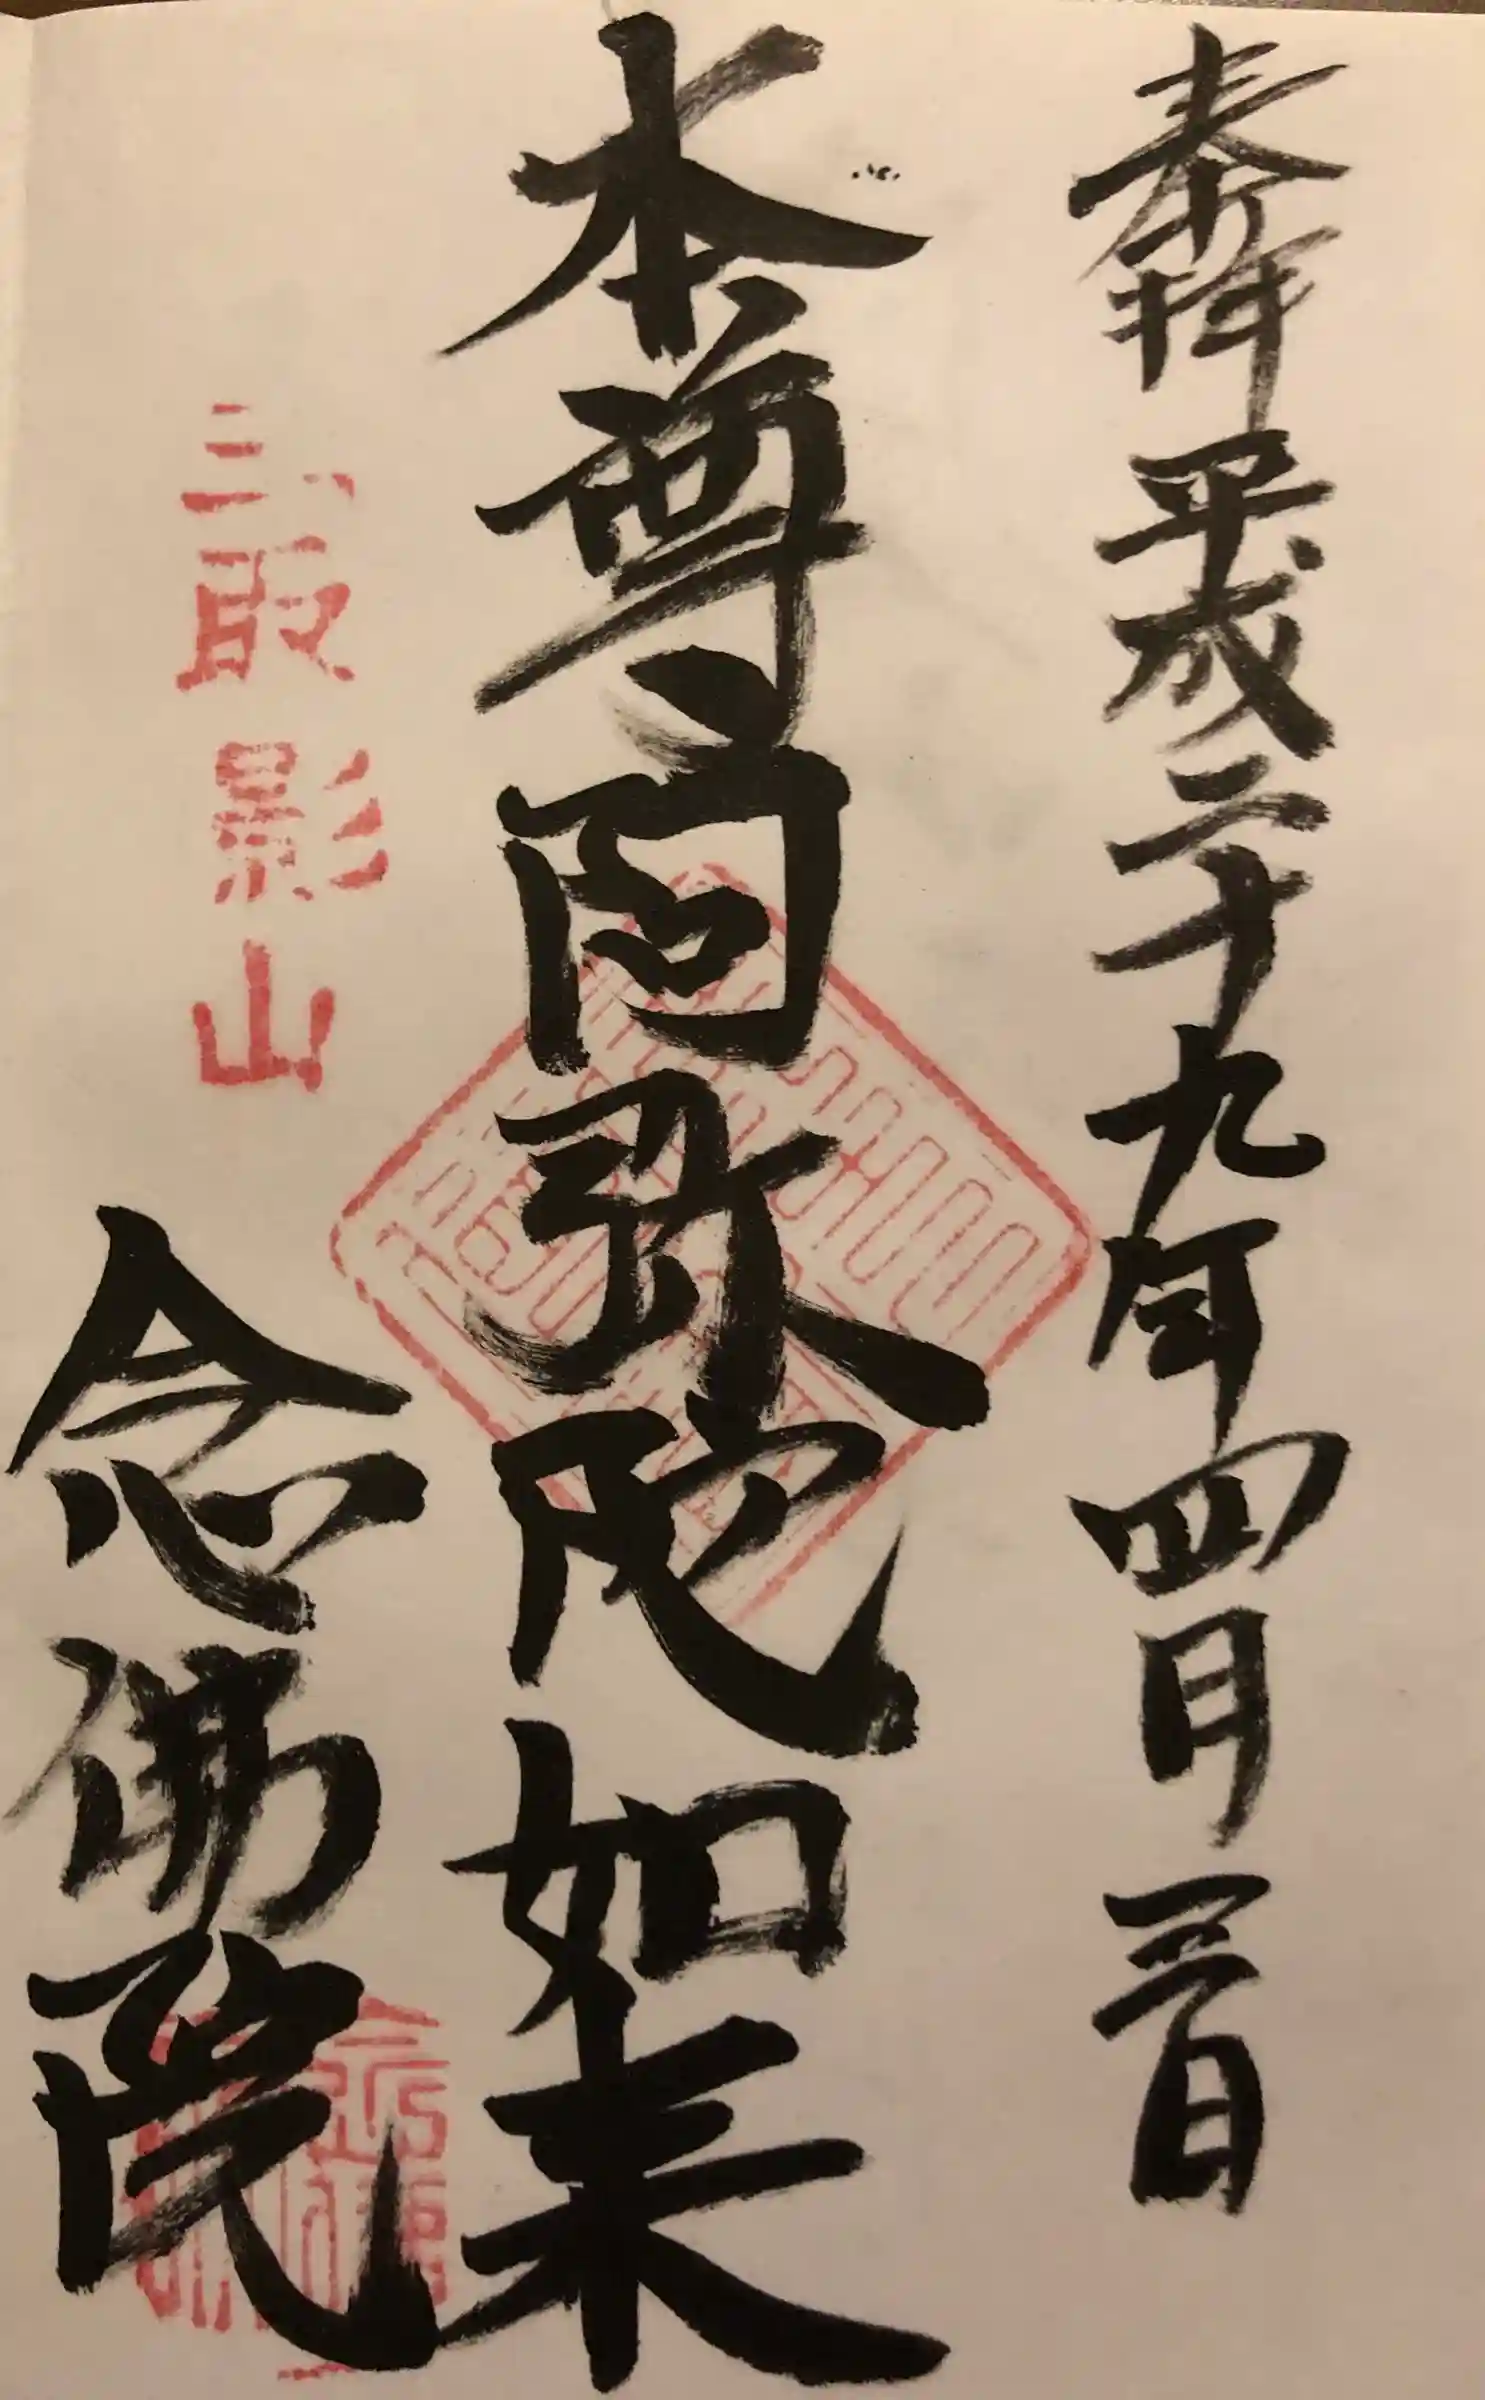 奉拝 平成二十九年四月三日
本尊阿弥陀如来
影山
念佛院